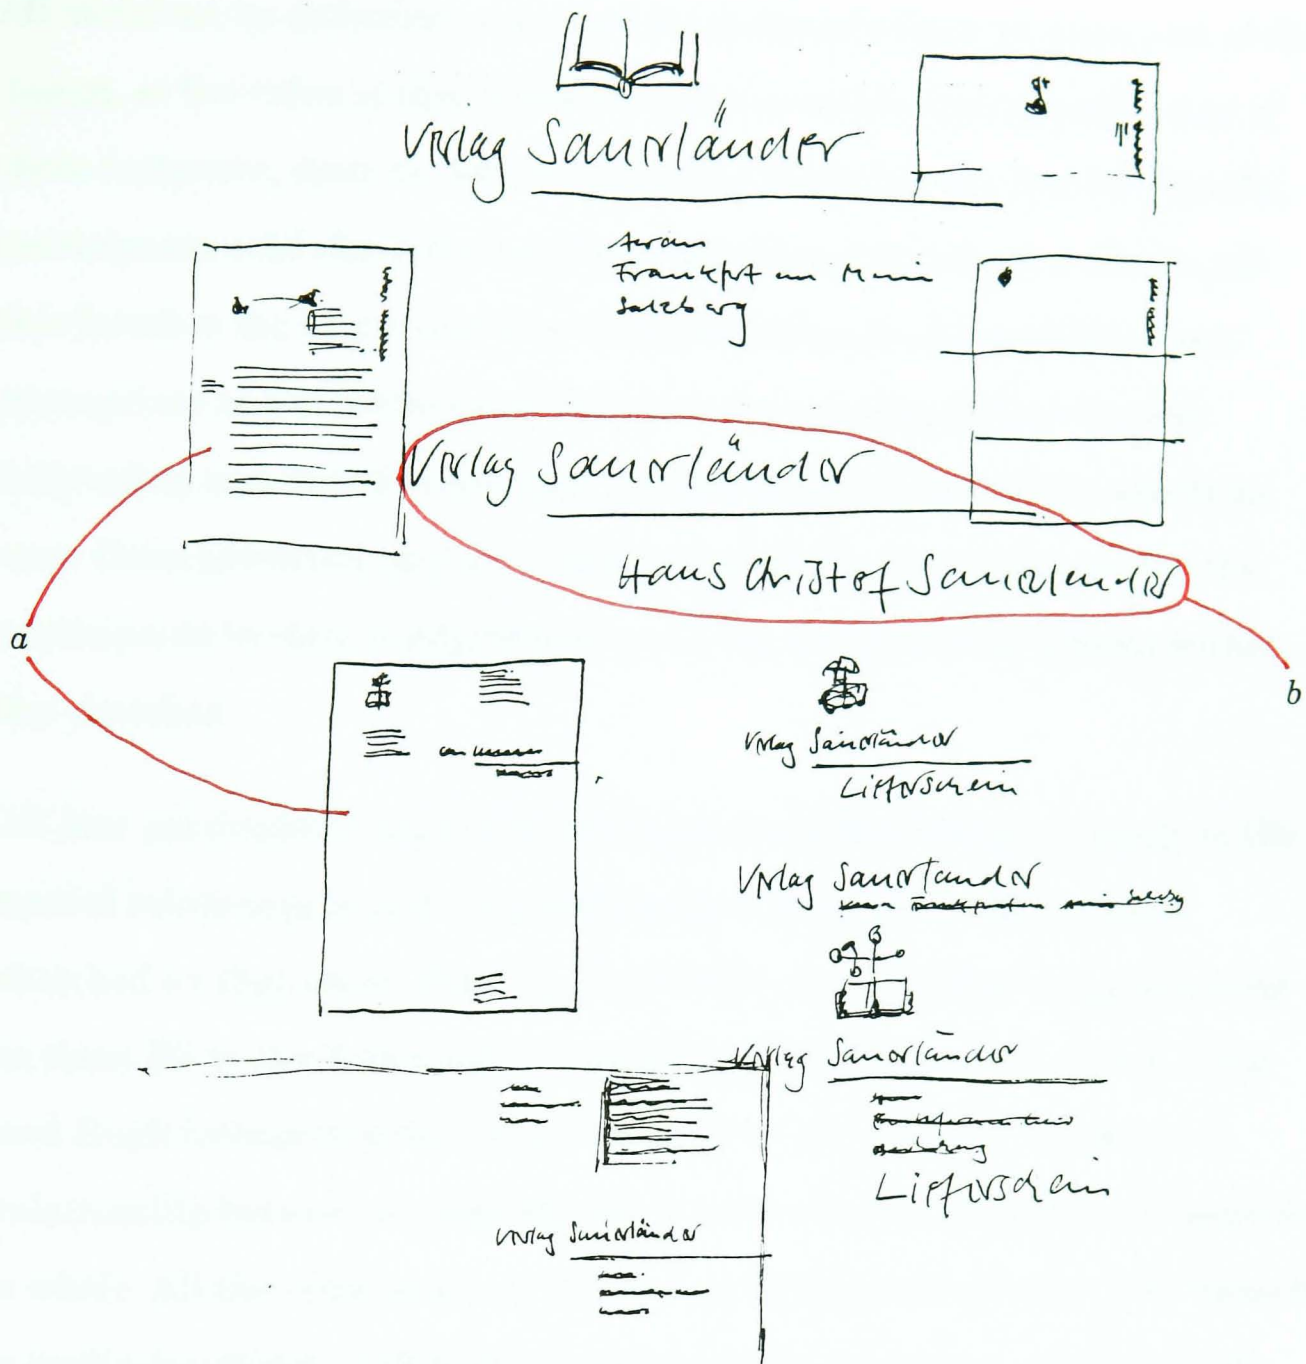 Verlag Sauerländer
Aarau
Frankfurt am Main
Salzburg
Verlag Sauerländer
Hans Christof Sauerländer
a
b
Verlag Sauerländer
Lieferschein
Verlag Sauerländer
Salzbg
Verlag Sauerländer
Lieferschein
Verlag Sauerländer